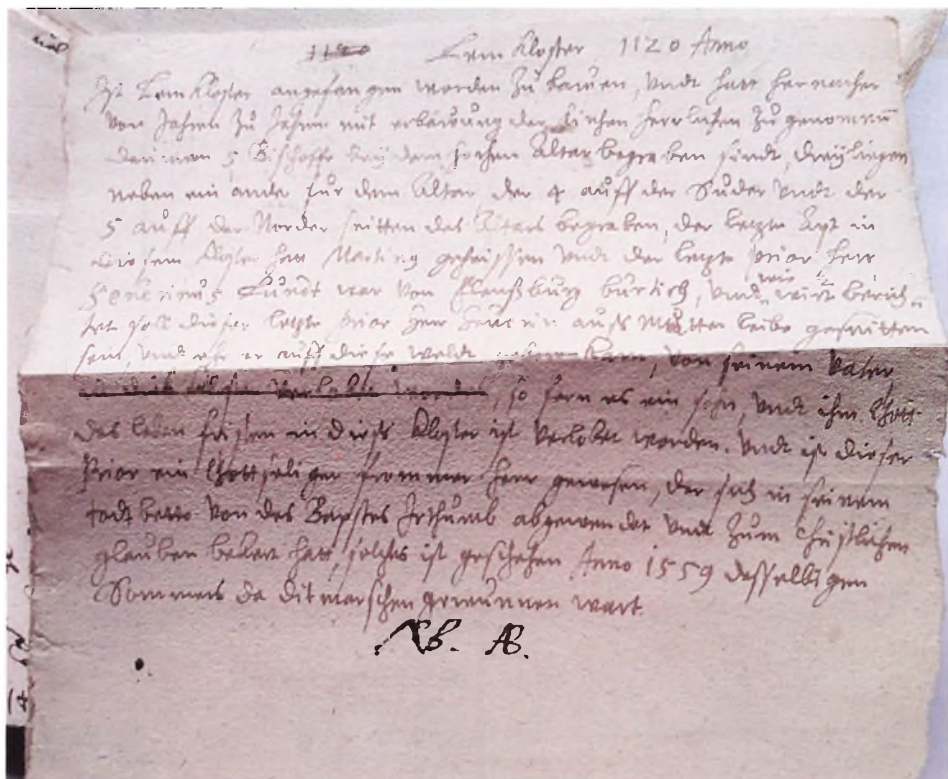 1120 Lem Kloster 1120 Anno
Ist Lem Kloster angefangen worden zu bauen, undt hatt hernacher
von Jahren zu Jahren mit erbauung der Kirchen herrlichen zu genommen
5 Bischoffe bey dem hohen Altar begraben sindt, drey liegen
neben ein ander für dem Altar der 4 auff der Suder undt der
5 auff der Norder seitten des Altars begraben, der letzte Apt in
diesem Kloster hatt Marting geheissen undt der letzte prior Herr
Henricus Lundt war von Flensburg bürtich, undt wie wirt berich-
tet soll dieser letzte prior Herr Henrich auss Mutter leibe geschnitten
sein, undt ehe er auff diese weldt kam, von seinem Vater
verlobt worden, so fern es ein sohn, undt ihm Gott
das leben fristen in diess Kloster ist verlobet worden. undt ist dieser
Prior ein Gottseliger frommer Herr gewesen, der sich in seinem
todt bette von des Bapstes Irthumb abgewendet undt zum Christlichen
glauben bekert hatt, solches ist geschehen Anno 1559 desselbigen
Sommers da ditmarschen gewunnen wart.